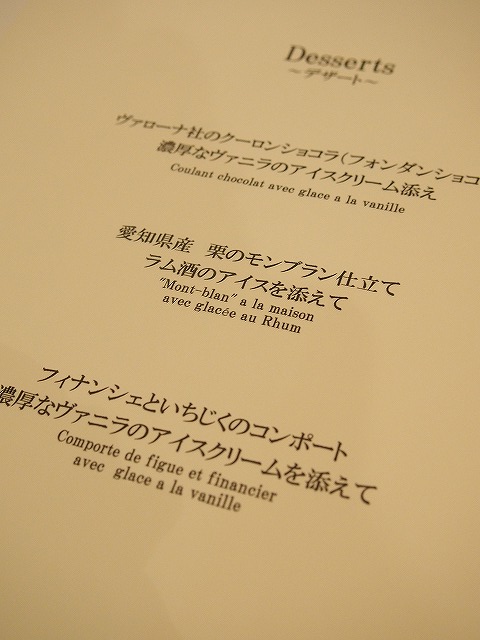 Desserts
～デザート～
ヴァローナ社のクーロンショコラ（フォンダンショコ
濃厚なヴァニラのアイスクリーム添え
Coulant chocolat avec glace a la vanille
愛知県産 栗のモンブラン仕立て
ラム酒のアイスを添えて
"Mont-blan" a la maison
avec glacée au Rhum
フィナンシェといちじくのコンポート
濃厚なヴァニラのアイスクリームを添えて
Comporte de figue et financier
avec glace a la vanille